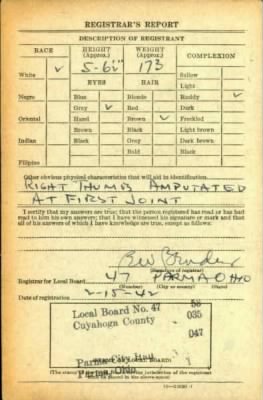 REGISTRAR'S REPORT
DESCRIPTION OF REGISTRANT
RACE HEIGHT (Approx.) WEIGHT (Approx.) COMPLEXION
White ✓ 5-6½" 173 Sallow
EYES HAIR Light
Negro Blue Blonde Ruddy ✓
Gray ✓ Red Dark
Oriental Hazel Brown ✓ Freckled
Brown Black Light brown
Indian Black Gray Dark brown
Bald Black
Filipino
Other obvious physical characteristics that will aid in identification.
RIGHT THUMB AMPUTATED
AT FIRST JOINT
I certify that my answers are true; that the person registered has read or has had
read to him his own answers; that I have witnessed his signature or mark and that
all of his answers of which I have knowledge are true, except as follows:
(Signature of registrar)
Registrar for Local Board 47 PARMA OHIO
(Number) (City or county) (State)
Date of registration 2-15-42
Local Board No. 47 58
Cuyahoga County 035
047
Parma City Hall
(STAMP OF LOCAL BOARD)
Parma, Ohio
(The stamp of the Local Board having jurisdiction of the registrant shall be
placed in the above space.)